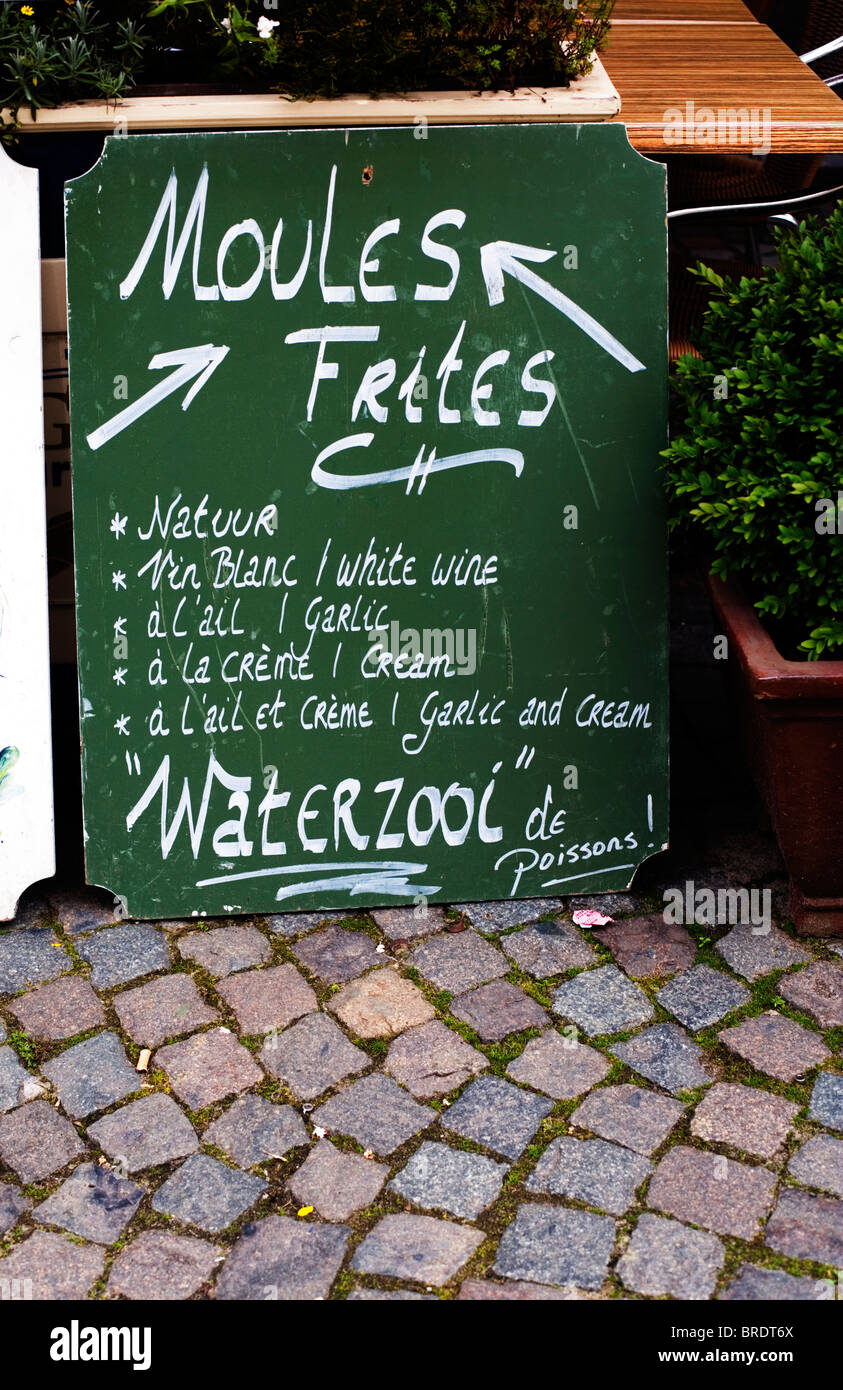 Moules
Frites
* Natuur
* Vin Blanc / white wine
* à l'ail / Garlic
* à la crème / Cream
* à l'ail et crème / Garlic and cream
"Waterzooi" de
Poissons!
alamy
Image ID: BRDT6X
www.alamy.com